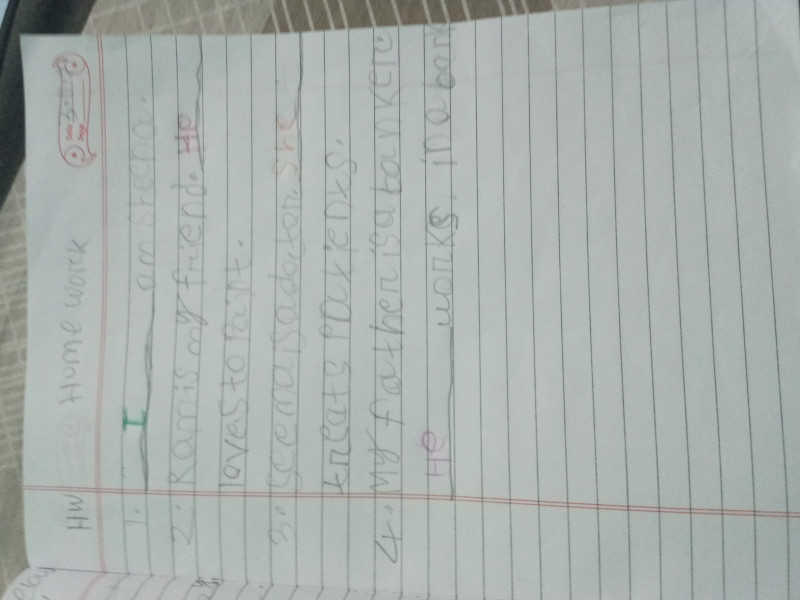 HW Home work
1. I am Sneha.
2. Ram is my friend. He
loves to Paint.
3. Seema is a doctor. She
treats patients.
4. My father is a banker.
He works in a bank
Play